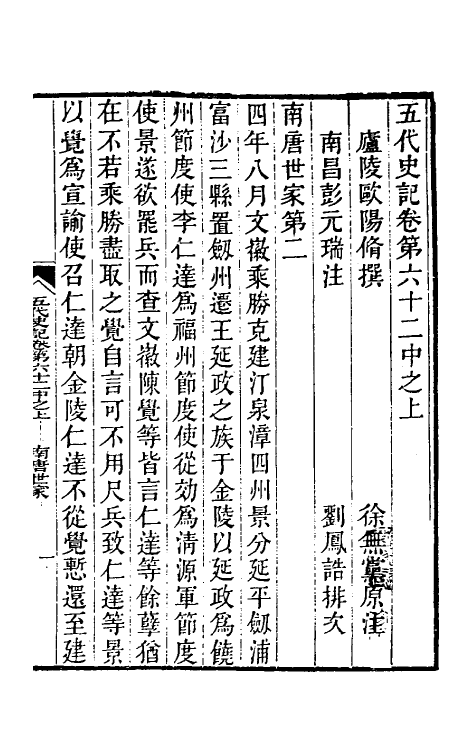 五代史記卷第六十二中之上
廬陵歐陽脩撰 徐無黨原注
南昌彭元瑞注 劉鳳誥排次
南唐世家第二
四年八月文徽乘勝克建汀泉漳四州景分延平劔浦
富沙三縣置劔州遷王延政之族于金陵以延政為饒
州節度使李仁達為福州節度使從効為清源軍節度
使景遂欲罷兵而查文徽陳覺等皆言仁達等餘孽猶
在不若乘勝盡取之覺自言可不用尺兵致仁達等景
以覺為宣諭使召仁達朝金陵仁達不從覺慙還至建
五代史記卷第六十二中之上 南唐世家 一